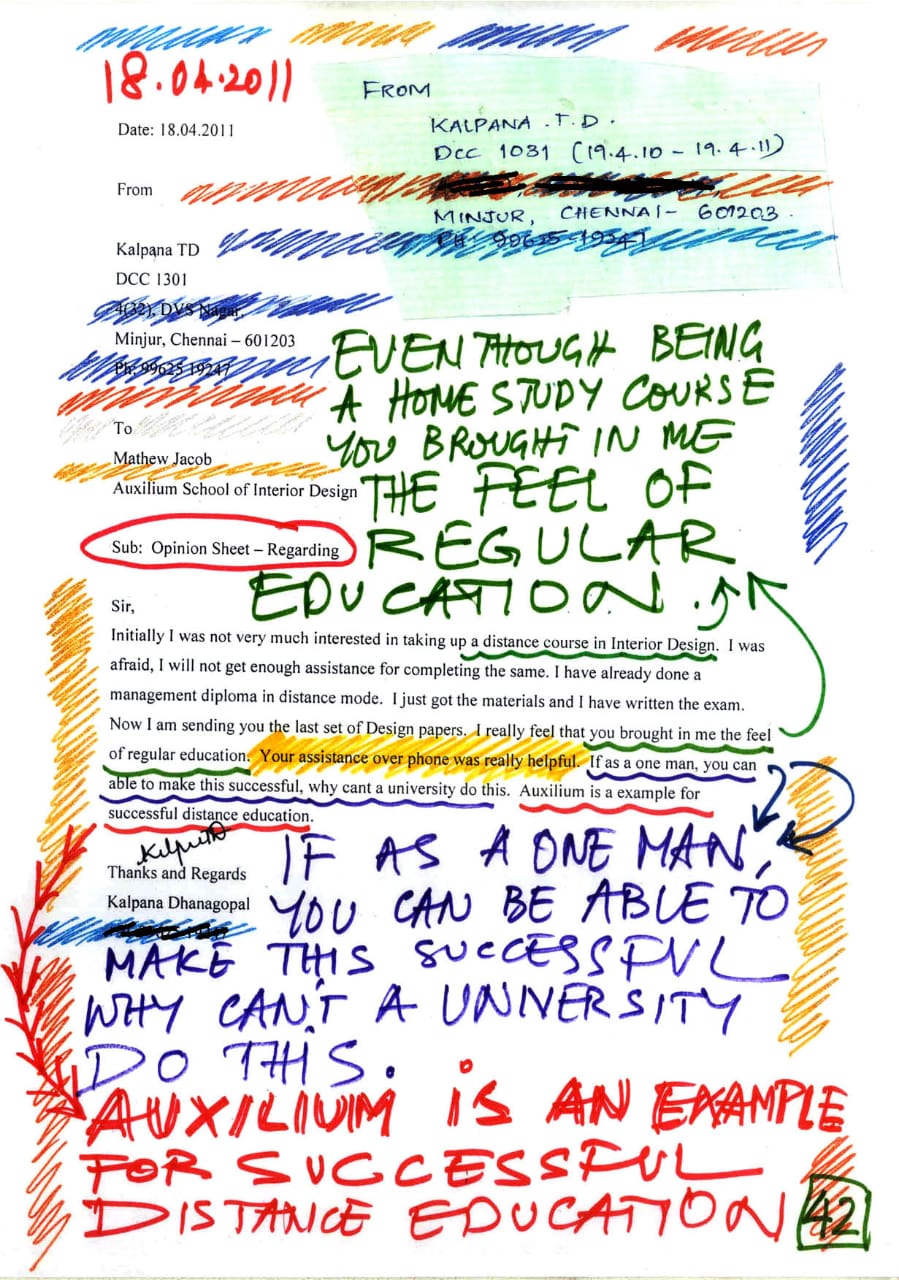 18.04.2011
FROM
KALPANA .T.D.
DCC 1031 (19.4.10 – 19.4.11)
MINJUR, CHENNAI – 601203.
PH: 99625-19247
Date: 18.04.2011
From
Kalpana TD
DCC 1301
4(32), DVS Nagar,
Minjur, Chennai – 601203
Ph: 99625 19247
To
Mathew Jacob
Auxilium School of Interior Design
Sub: Opinion Sheet – Regarding
EVEN THOUGH BEING
A HOME STUDY COURSE
YOU BROUGHT IN ME
THE FEEL OF
REGULAR
EDUCATION.
Sir,
Initially I was not very much interested in taking up a distance course in Interior Design. I was
afraid, I will not get enough assistance for completing the same. I have already done a
management diploma in distance mode. I just got the materials and I have written the exam.
Now I am sending you the last set of Design papers. I really feel that you brought in me the feel
of regular education. Your assistance over phone was really helpful. If as a one man, you can
able to make this successful, why cant a university do this. Auxilium is a example for
successful distance education.
Thanks and Regards
Kalpana Dhanagopal
IF AS A ONE MAN,
YOU CAN BE ABLE TO
MAKE THIS SUCCESSFUL
WHY CAN'T A UNIVERSITY
DO THIS.
AUXILIUM iS AN EXAMPLE
FOR SUCCESSFUL
DISTANCE EDUCATION
42